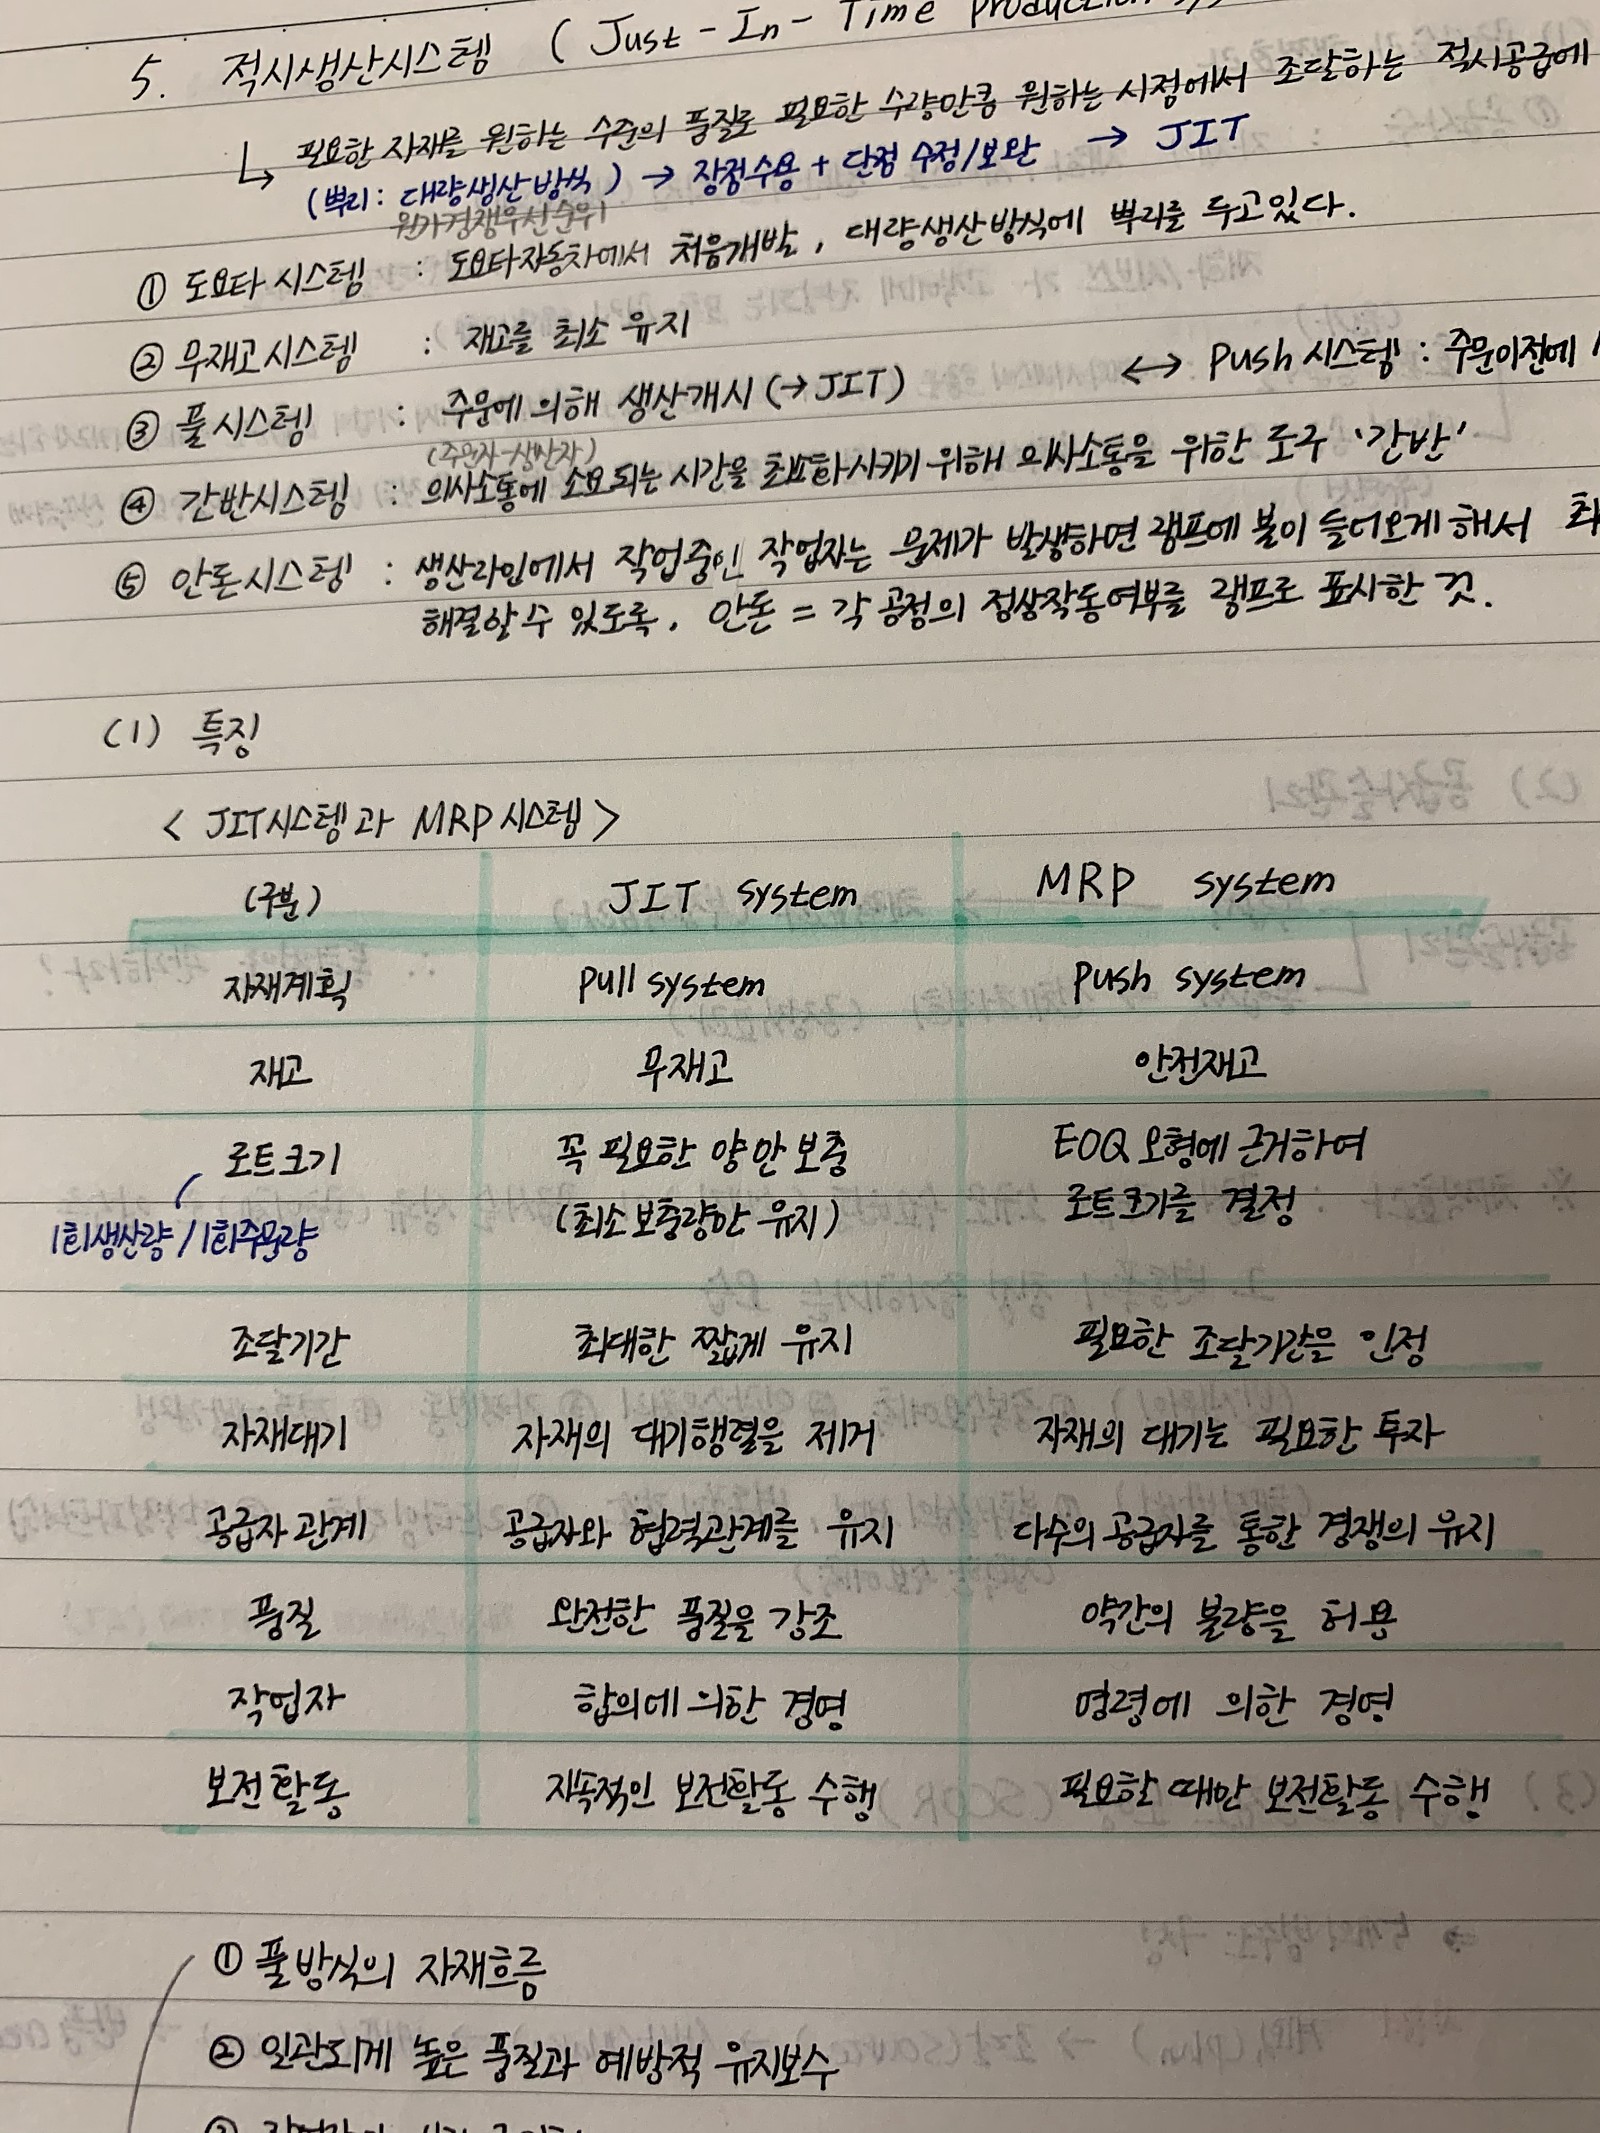 5. 적시생산시스템 ( Just-In-Time production
↳ 필요한 자재를 원하는 수준의 품질로 필요한 수량만큼 원하는 시점에서 조달하는 적시공급에
(뿌리: 대량생산방식) → 장점수용 + 단점 수정/보완 → JIT
원가경쟁우선순위
① 도요타 시스템 : 도요타자동차에서 처음개발, 대량생산방식에 뿌리를 두고있다.
② 무재고시스템 : 재고를 최소 유지
③ 풀시스템 : 주문에 의해 생산개시 (→JIT) ↔ push 시스템 : 주문이전에
(주문자-생산자)
④ 간반시스템 : 의사소통에 소요되는 시간을 최소화시키기 위해 의사소통을 위한 도구 '간반'
⑤ 안돈시스템 : 생산라인에서 작업중인 작업자는 문제가 발생하면 램프에 불이 들어오게 해서
해결할 수 있도록. 안돈 = 각 공정의 정상작동여부를 램프로 표시한 것.
(1) 특징
< JIT시스템과 MRP시스템 >
(구분) JIT system MRP system
자재계획 pull system push system
재고 무재고 안전재고
로트크기 꼭 필요한 양만 보충 EOQ 모형에 근거하여
1회생산량/1회주문량 (최소 보충량만 유지) 로트크기를 결정
조달기간 최대한 짧게 유지 필요한 조달기간을 인정
자재대기 자재의 대기행렬을 제거 자재의 대기는 필요한 투자
공급자 관계 공급자와 협력관계를 유지 다수의 공급자를 통한 경쟁의 유지
품질 완전한 품질을 강조 약간의 불량을 허용
작업자 합의에 의한 경영 명령에 의한 경영
보전활동 지속적인 보전활동 수행 필요할 때만 보전활동 수행
① 풀방식의 자재흐름
② 일관되게 높은 품질과 예방적 유지보수